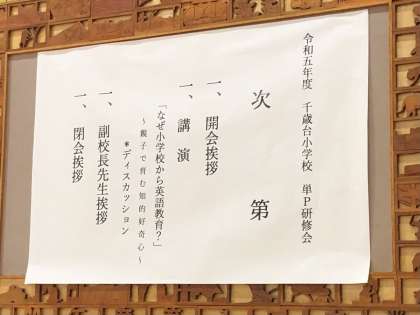 令和五年度　千歳台小学校　単P研修会
次　第
一、開会挨拶
一、講　演
「なぜ小学校から英語教育？」
～親子で育む知的好奇心～
＊ディスカッション
一、副校長先生挨拶
一、閉会挨拶